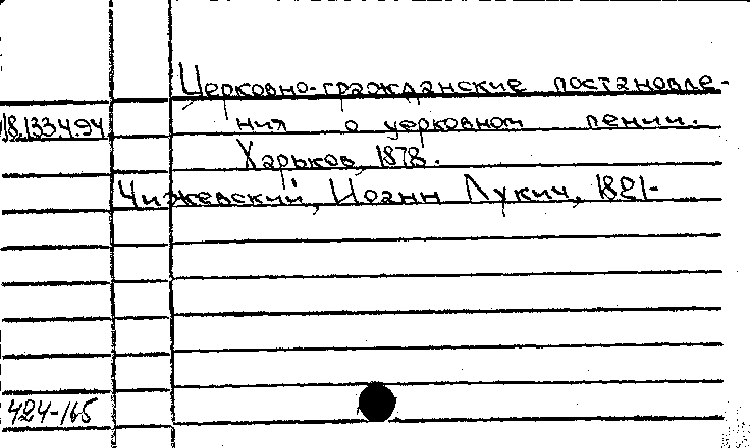 Церковно-гражданские постановле-
18.1334.94 ния о церковном пении.
Харьков, 1878.
Чижевский, Иоанн Лукич, 1821-
424-165